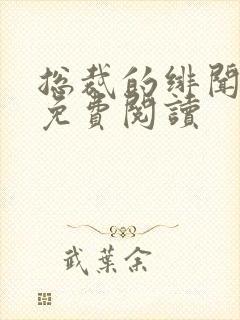 总裁的绯聞
免費閱讀
武葉余